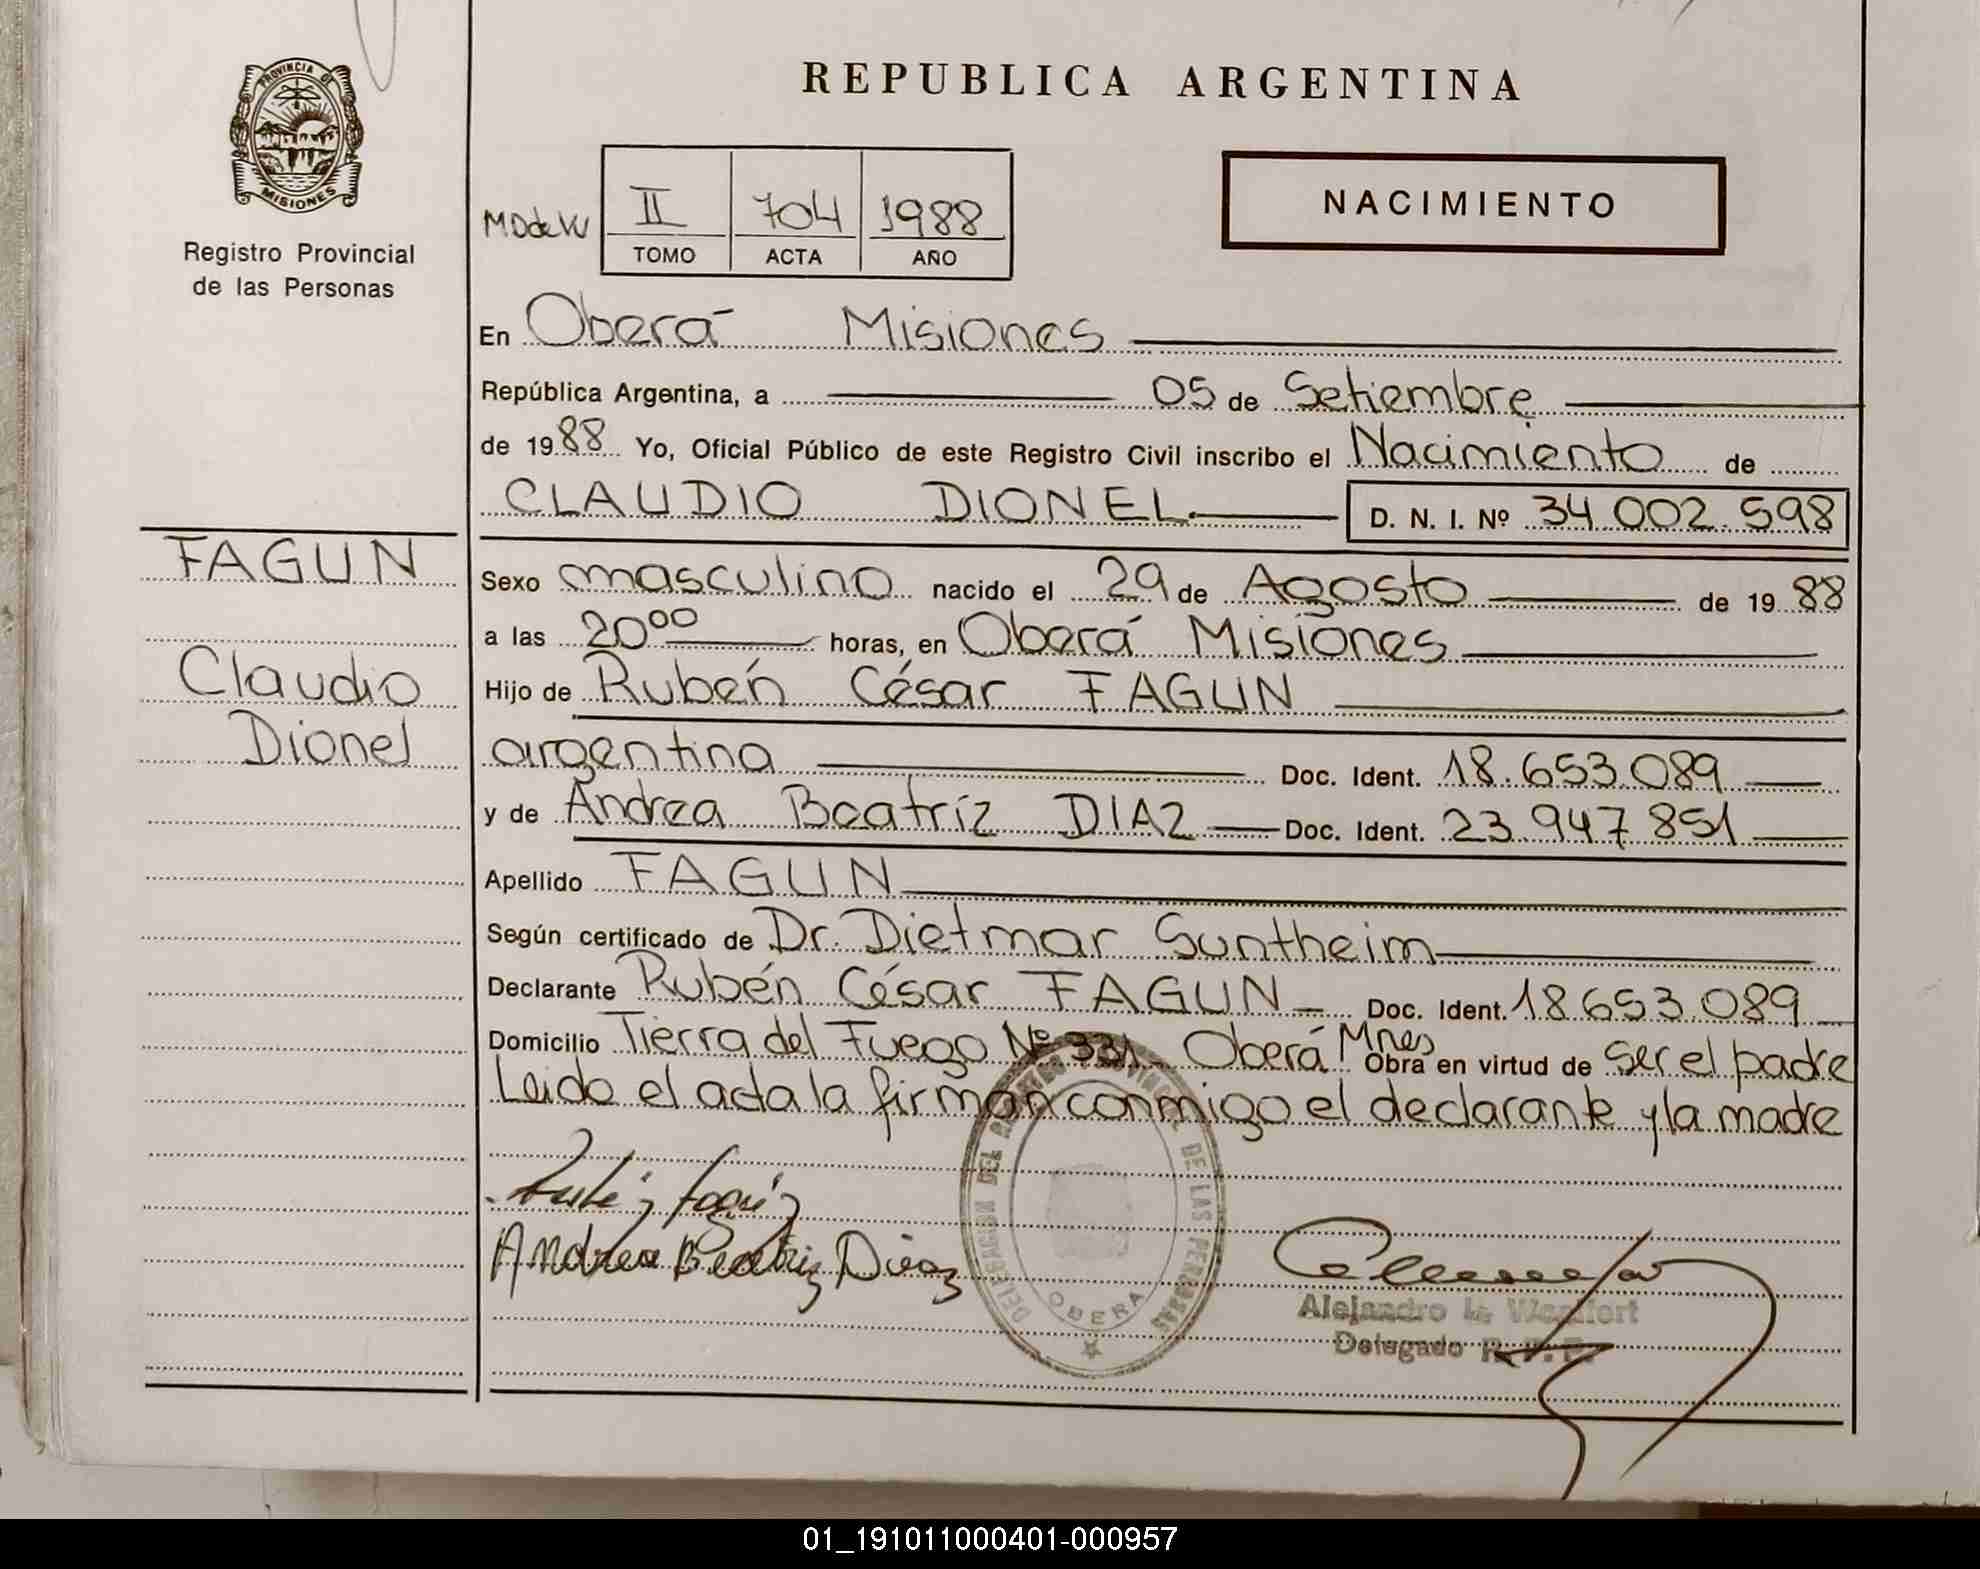 REPUBLICA ARGENTINA
PROVINCIA DE
MISIONES
Registro Provincial
de las Personas
MDdeW
II 704 1988
TOMO ACTA AÑO
NACIMIENTO
En Oberá Misiones
República Argentina, a 05 de Setiembre
de 1988 Yo, Oficial Público de este Registro Civil inscribo el Nacimiento de
CLAUDIO DIONEL. D. N. I. Nº 34 002.598
FAGUN
Claudio
Dionel
Sexo masculino nacido el 29 de Agosto de 1988
a las 20⁰⁰ horas, en Oberá Misiones
Hijo de Rubén César FAGUN
argentina Doc. Ident. 18.653.089
y de Andrea Beatríz DIAZ Doc. Ident. 23.947.851
Apellido FAGUN
Según certificado de Dr. Dietmar Suntheim
Declarante Rubén César FAGUN Doc. Ident. 18653089
Domicilio Tierra del Fuego Nº 331 Oberá Mnes Obra en virtud de ser el padre
Leido el acta la firman conmigo el declarante y la madre
Andrea Beatriz Diaz
DELEGACION DEL REGISTRO PROVINCIAL DE LAS PERSONAS
OBERA
Alejandro
Delegado R. P. P.
01_191011000401-000957